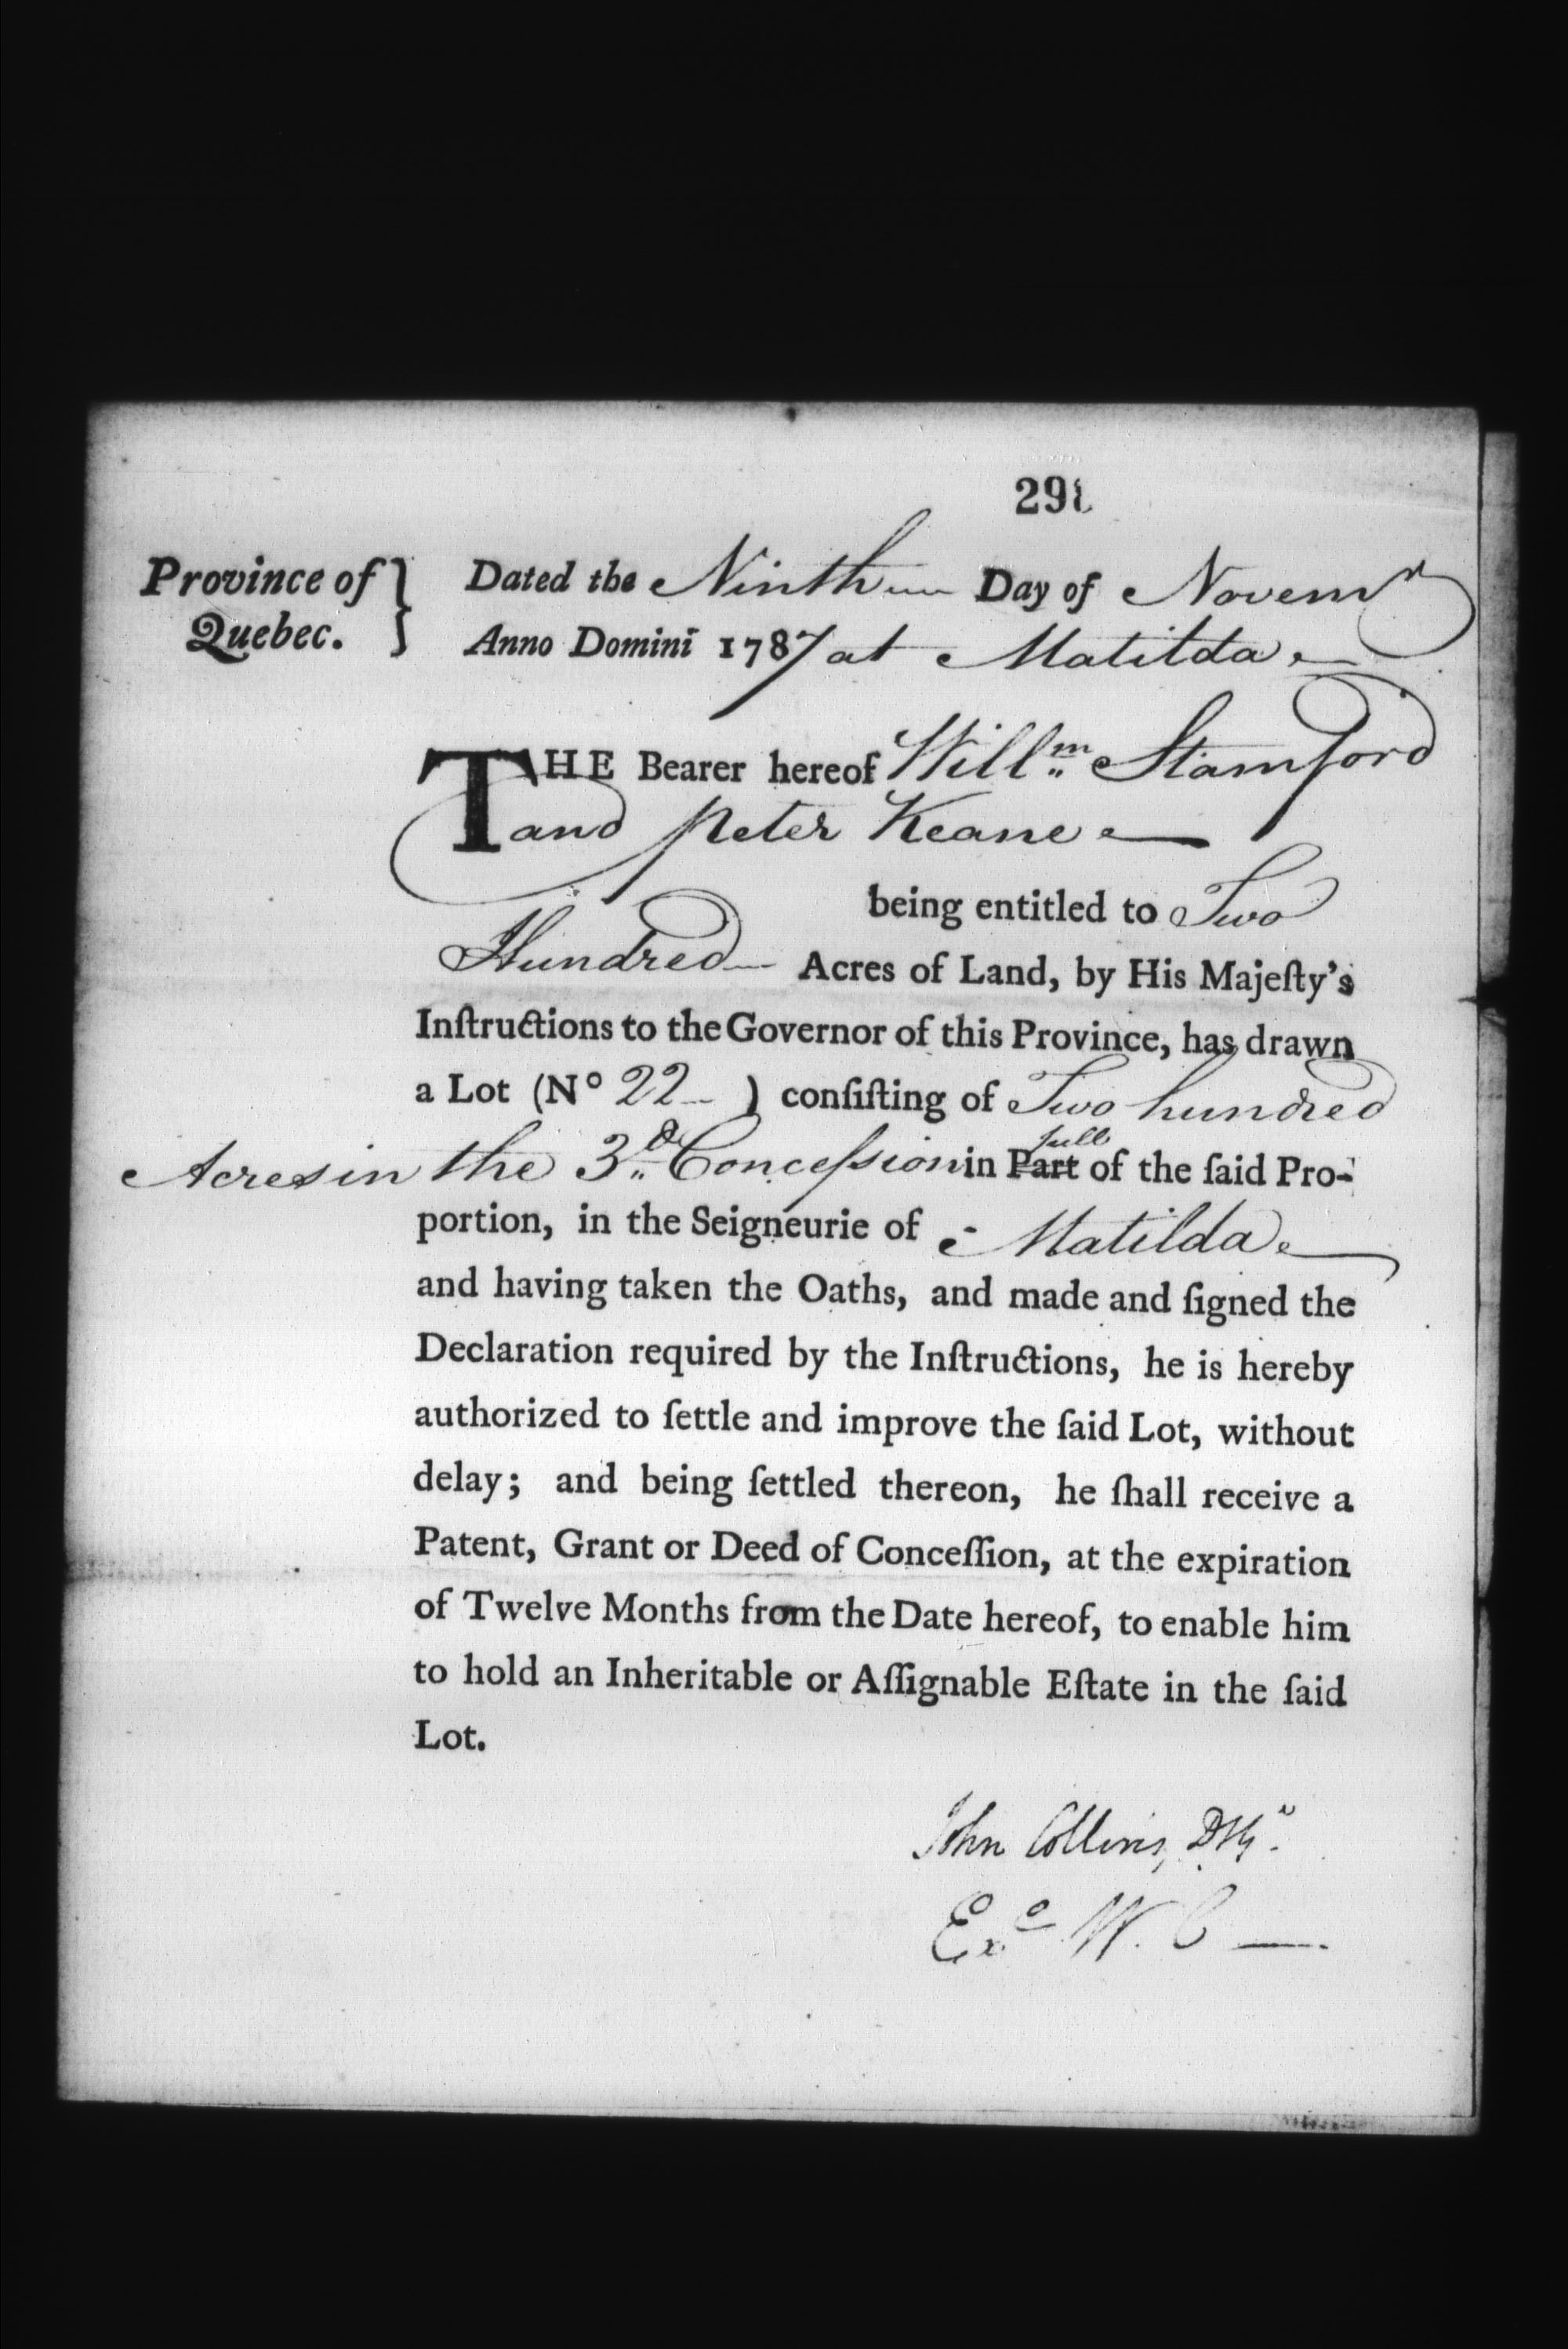 298
Province of } Dated the Ninth Day of Novemr
Quebec. } Anno Domini 1787 at Matilda
THE Bearer hereof Willm Stamford
and Peter Keane
being entitled to Two
Hundred Acres of Land, by His Majeſty's
Inſtructions to the Governor of this Province, has drawn
a Lot (No 22 ) conſiſting of Two hundred
full
Acres in the 3d Conceſsion in Part of the ſaid Pro-
portion, in the Seigneurie of Matilda
and having taken the Oaths, and made and ſigned the
Declaration required by the Inſtructions, he is hereby
authorized to ſettle and improve the ſaid Lot, without
delay; and being ſettled thereon, he ſhall receive a
Patent, Grant or Deed of Conceſſion, at the expiration
of Twelve Months from the Date hereof, to enable him
to hold an Inheritable or Aſſignable Eſtate in the ſaid
Lot.
John Collins,
Exe W. C